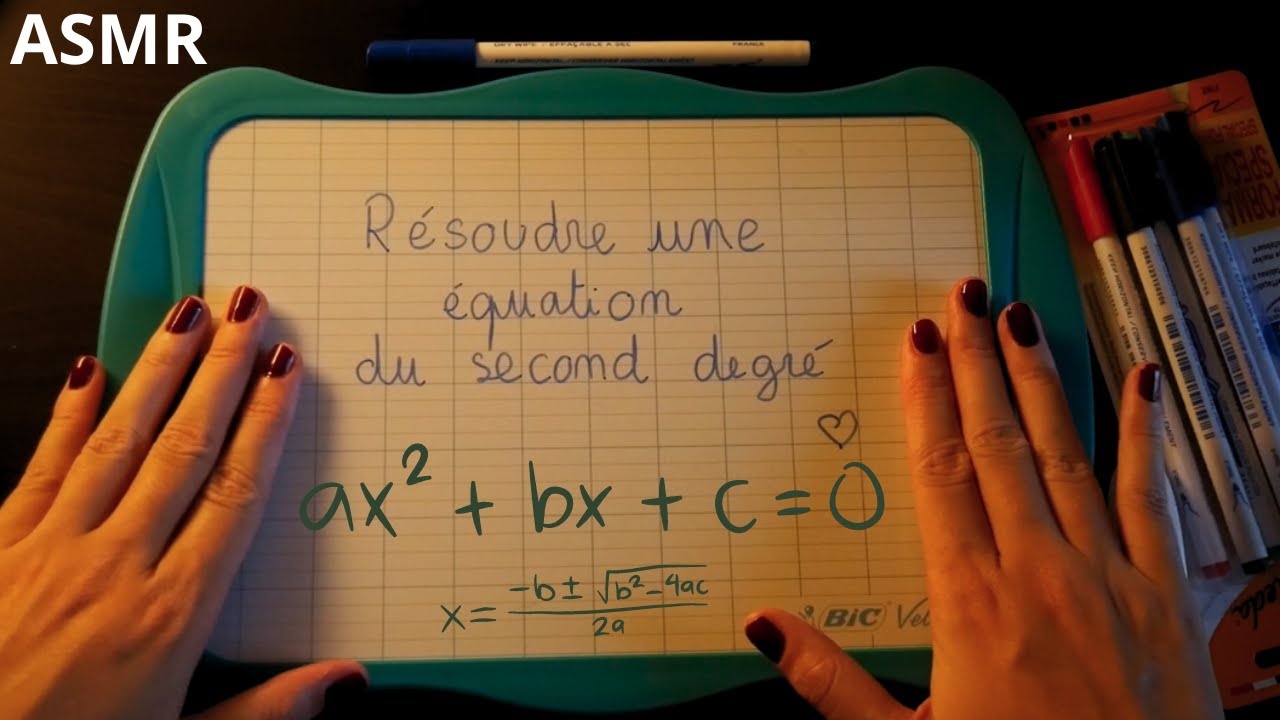 ASMR
DRY WIPE / EFFAÇABLE A SEC
FRANCE
Résoudre une
équation
du second degré
ax² + bx + c = 0
x = (-b ± √(b² - 4ac)) / 2a
BIC Vel